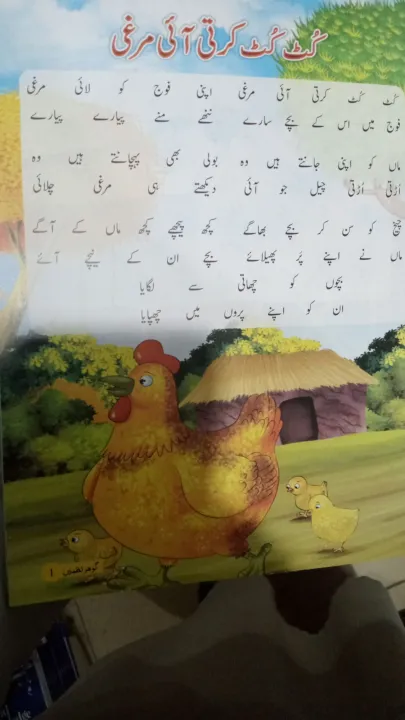 کُٹ کُٹ کرتی آئی مرغی
کُٹ کُٹ کرتی آئی مرغی اپنی فوج کو لائی مرغی
فوج میں اس کے بچے سارے ننھے منے پیارے پیارے
ماں کو اپنی جانتے ہیں وہ بولی بھی پہچانتے ہیں وہ
اُڑتی اُڑتی چیل جو آئی دیکھتے ہی مرغی چلائی
چیخ کو سن کر بچے بھاگے کچھ پیچھے کچھ ماں کے آگے
ماں نے اپنے پر پھیلائے بچے ان کے نیچے آئے
بچوں کو چھاتی سے لگایا
ان کو اپنے پروں میں چھپایا
۱